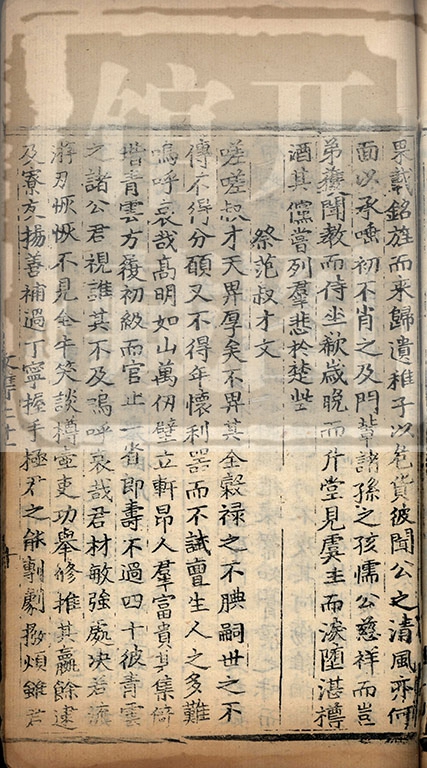 果載銘旌而来歸遺稚子以色貨彼聞公之清風亦何
面以承唾初不肖之及門輩諸孫之孩懦公慈祥而豈
弟獲聞教而侍坐歎歲晚而升堂見虞主而淚墮湛樽
酒其儒嘗列羣悲於楚些
祭范叔才文
嗟嗟叔才天畀厚矣不畀其全穀禄之不腆嗣世之不
傳不得分願又不得年懷利器而不試亶生人之多難
嗚呼哀哉高明如山萬仞壁立軒昂人羣富貴集
堦青雲方履初級而官止一省郎壽不過四十彼青雲
之諸公君視誰其不及嗚呼哀哉君材敏強處决若流
游刃恢恢不見全牛笑談樽壺吏功舉修推其贏餘逮
及寮友揚善補過丁寧握手極君之能剸劇撥煩雖君